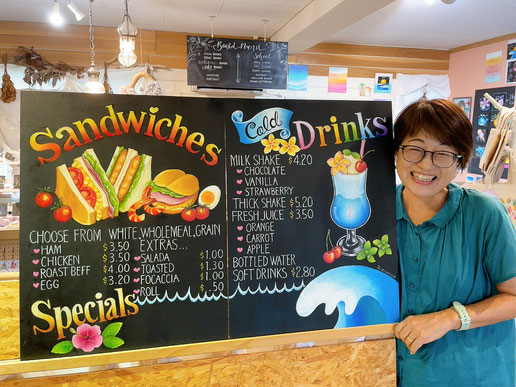 Sandwiches
CHOOSE FROM WHITE, WHOLEMEAL, GRAIN
HAM $3.50
CHICKEN $3.50
ROAST BEFF $4.00
EGG $3.20
EXTRAS...
SALADA $1.00
TOASTED $1.30
FOCACCIA $1.00
ROLL $.50
Specials
Cold Drinks
MILK SHAKE $4.20
CHOCOLATE
VANILLA
STRAWBERRY
THICK SHAKE $5.20
FRESH JUICE $3.50
ORANGE
CARROT
APPLE
BOTTLED WATER
SOFT DRINKS $2.80